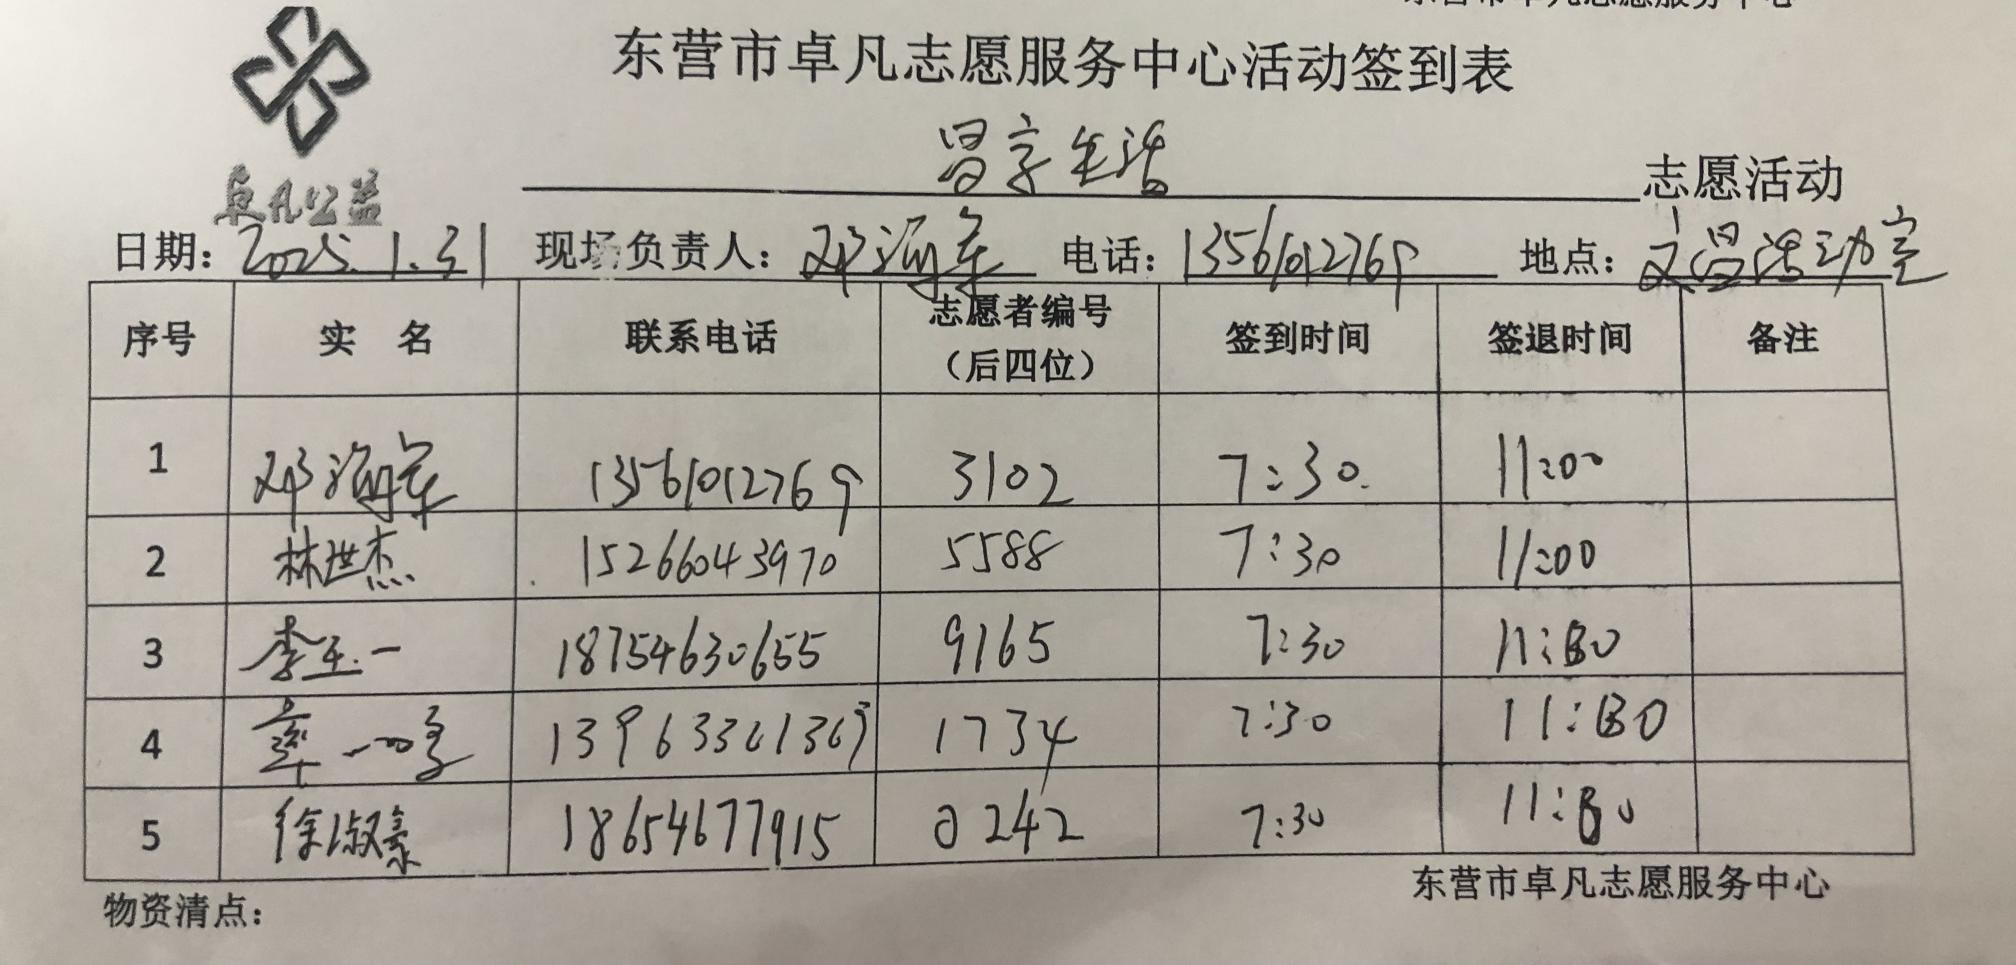 东营市卓凡志愿服务中心活动签到表
生活 志愿活动
卓凡公益
日期：2025.1.31 现场负责人：邓海军 电话：13561012769 地点：文昌活动室
序号 实 名 联系电话 志愿者编号（后四位） 签到时间 签退时间 备注
1 邓海军 13561012769 3102 7:30. 11:00
2 林世杰 15266043970 5588 7:30 11:00
3 李玉一 18754630655 9165 7:30 11:
4 1734 7:30 11:
5 徐淑素 18654677915 0242 7:30 11:
东营市卓凡志愿服务中心
物资清点：